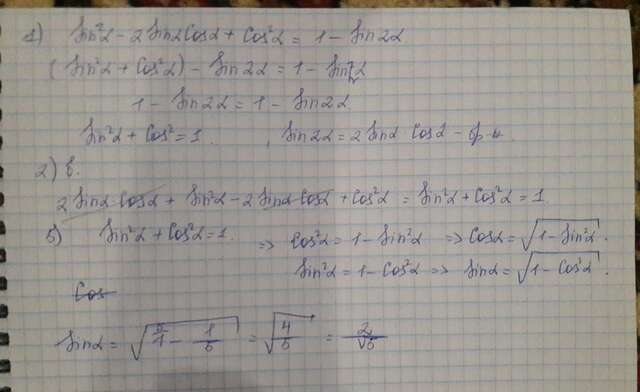 1) Sin²α - 2SinαCosα + Cos²α = 1 - Sin2α
(Sin²α + Cos²α) - Sin2α = 1 - Sin2α
1 - Sin2α = 1 - Sin2α
Sin²α + Cos² = 1. , Sin2α = 2Sinα Cosα - ф-ы.
2) в.
2Sinα Cosα + Sin²α - 2Sinα Cosα + Cos²α = Sin²α + Cos²α = 1
5) Sin²α + Cos²α = 1. => Cos²α = 1 - Sin²α => Cosα = √(1 - Sin²α).
Sin²α = 1 - Cos²α => Sinα = √(1 - Cos²α).
Cos
Sinα = √(5/1 - 1/5) = √(4/5) = 2/√5